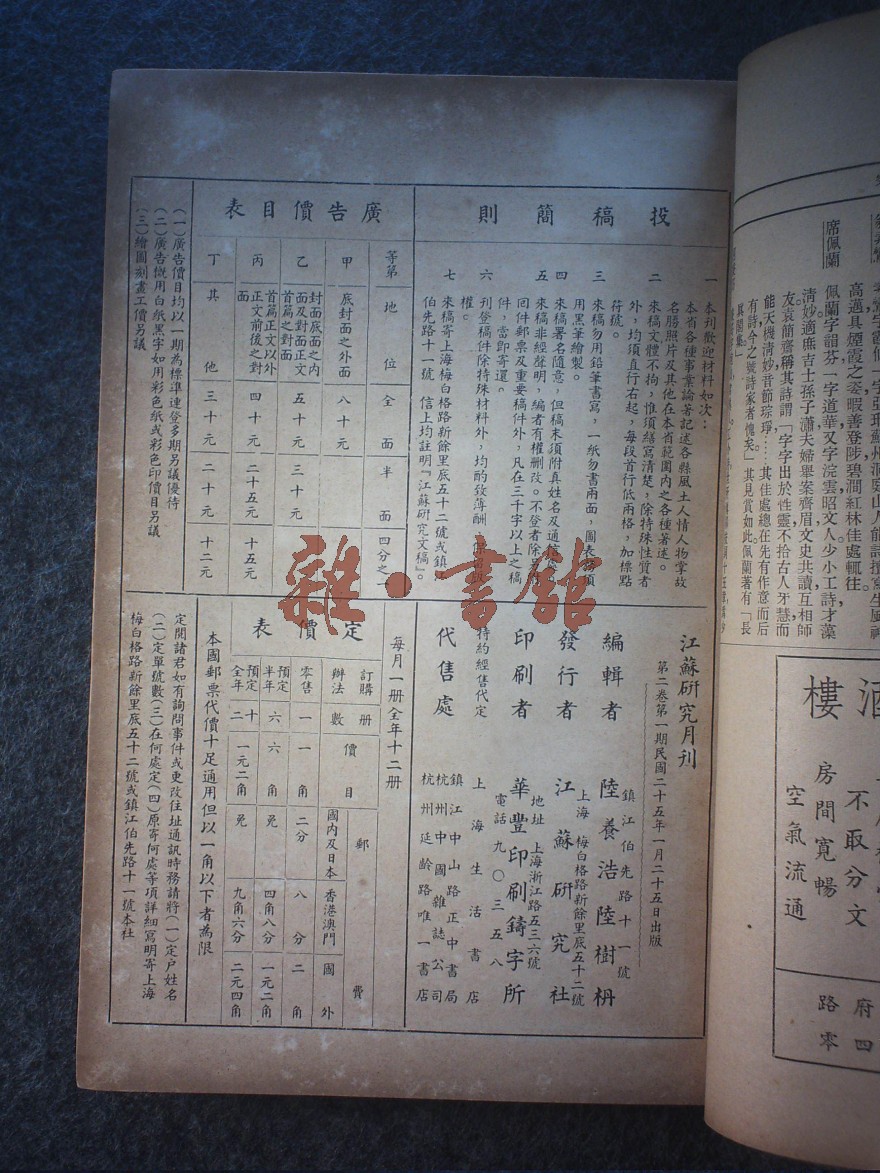 投稿簡則
一 本刊歡迎材料如次：
本省各種事業論著記述各縣風土人情人物掌故
名勝照片及其他在本省範圍內之各種著述。
二 來稿文體不拘，惟須繕寫清楚，除特殊性質者
外，均須直行右起，每段首行低兩格，加標點
符號。
三 來稿勿用鉛筆書寫，一紙勿書兩面，圖表務須
用黑筆繪製。
四 來稿署名隨意，但稿末須附真姓名及通信處
五 來稿非經聲明，編者有權刪改。不登者除另有
回件郵票及重要稿件外，凡在三千字以上之稿
件，當即寄還。
六 刊登稿件除特殊材料外，均酌致薄酬
權。
七 來稿寄上海梅白格路新餘里底五十二號或鎮江
伯先路十一號 信上均註明『江蘇研究文稿』。
廣告價目表
等第 地位 全面 半面 四分之一
甲 底封面之外面 八十元
乙 封面底面之內面及對面正文首篇之對面 五十元 三十元
丙 首篇正文以外正文前後之對面 四十元 二十五元 十五元
丁 其他 三十元 二十元 十二元
（一）廣告價目均以一期為標準連登多期另議優待
（二）廣告慨用白紙黑字如用彩色紙或彩色印價目另議
（三）繪圖刻畫工價另議
江蘇研究月刊
第二卷第一期民國二十五年一月二十五日出版
編輯者 陸養浩 陸樹枬
鎮江伯先路十一號
上海梅白格路新餘里底五十二號
發行者 江蘇研究社
地址 上海浙江路五三六號
印刷者 華豐印刷鑄字所
電話九〇三五八
特約經售代定
代售處
上海生活書店
鎮江中山路正中書局
杭州中國雜誌公司
杭州延齡路唯一書店
每月一册全年十二册
定價表
訂購辦法 册數 價目 郵費
國內及日本 香港澳門 國外
零售 一 一角 二分 八分 二角
預定半年 六 六角 免 四角八分 一元二角
預定全年 十二 一元二角 免 九角六分 二元四角
本國郵票代價十足通用但以一角以下者為限
定閱諸君如有詢問事件或更改住址通訊時務請將（一）定戶姓名
（二）定單號數（三）在何處定（四）原寄何處等項詳細寫明寄上海
梅白格路新餘里底五十二號或鎮江伯先路十一號本社
席佩蘭
佩蘭字韻芬一字道華又字浣雲昭文人少小工詩才藻
清妙適庶吉士孫子瀟夫婦舉案齊眉文史共讀互相師
友袁簡齋稱其詩謂「字字出於性靈不拾古人牙慧而
能天機清妙音節琮琤……其佳處總在先有作意而后
有詩今之號詩家者愧矣」其見賞如此佩蘭著有「長
真閣集」
高邁具煙霞之姿暇善登陟碧澗紅林佳處輒往
酒樓
不取分文
房間寬暢
空氣流通
府四
路零
雜·書館